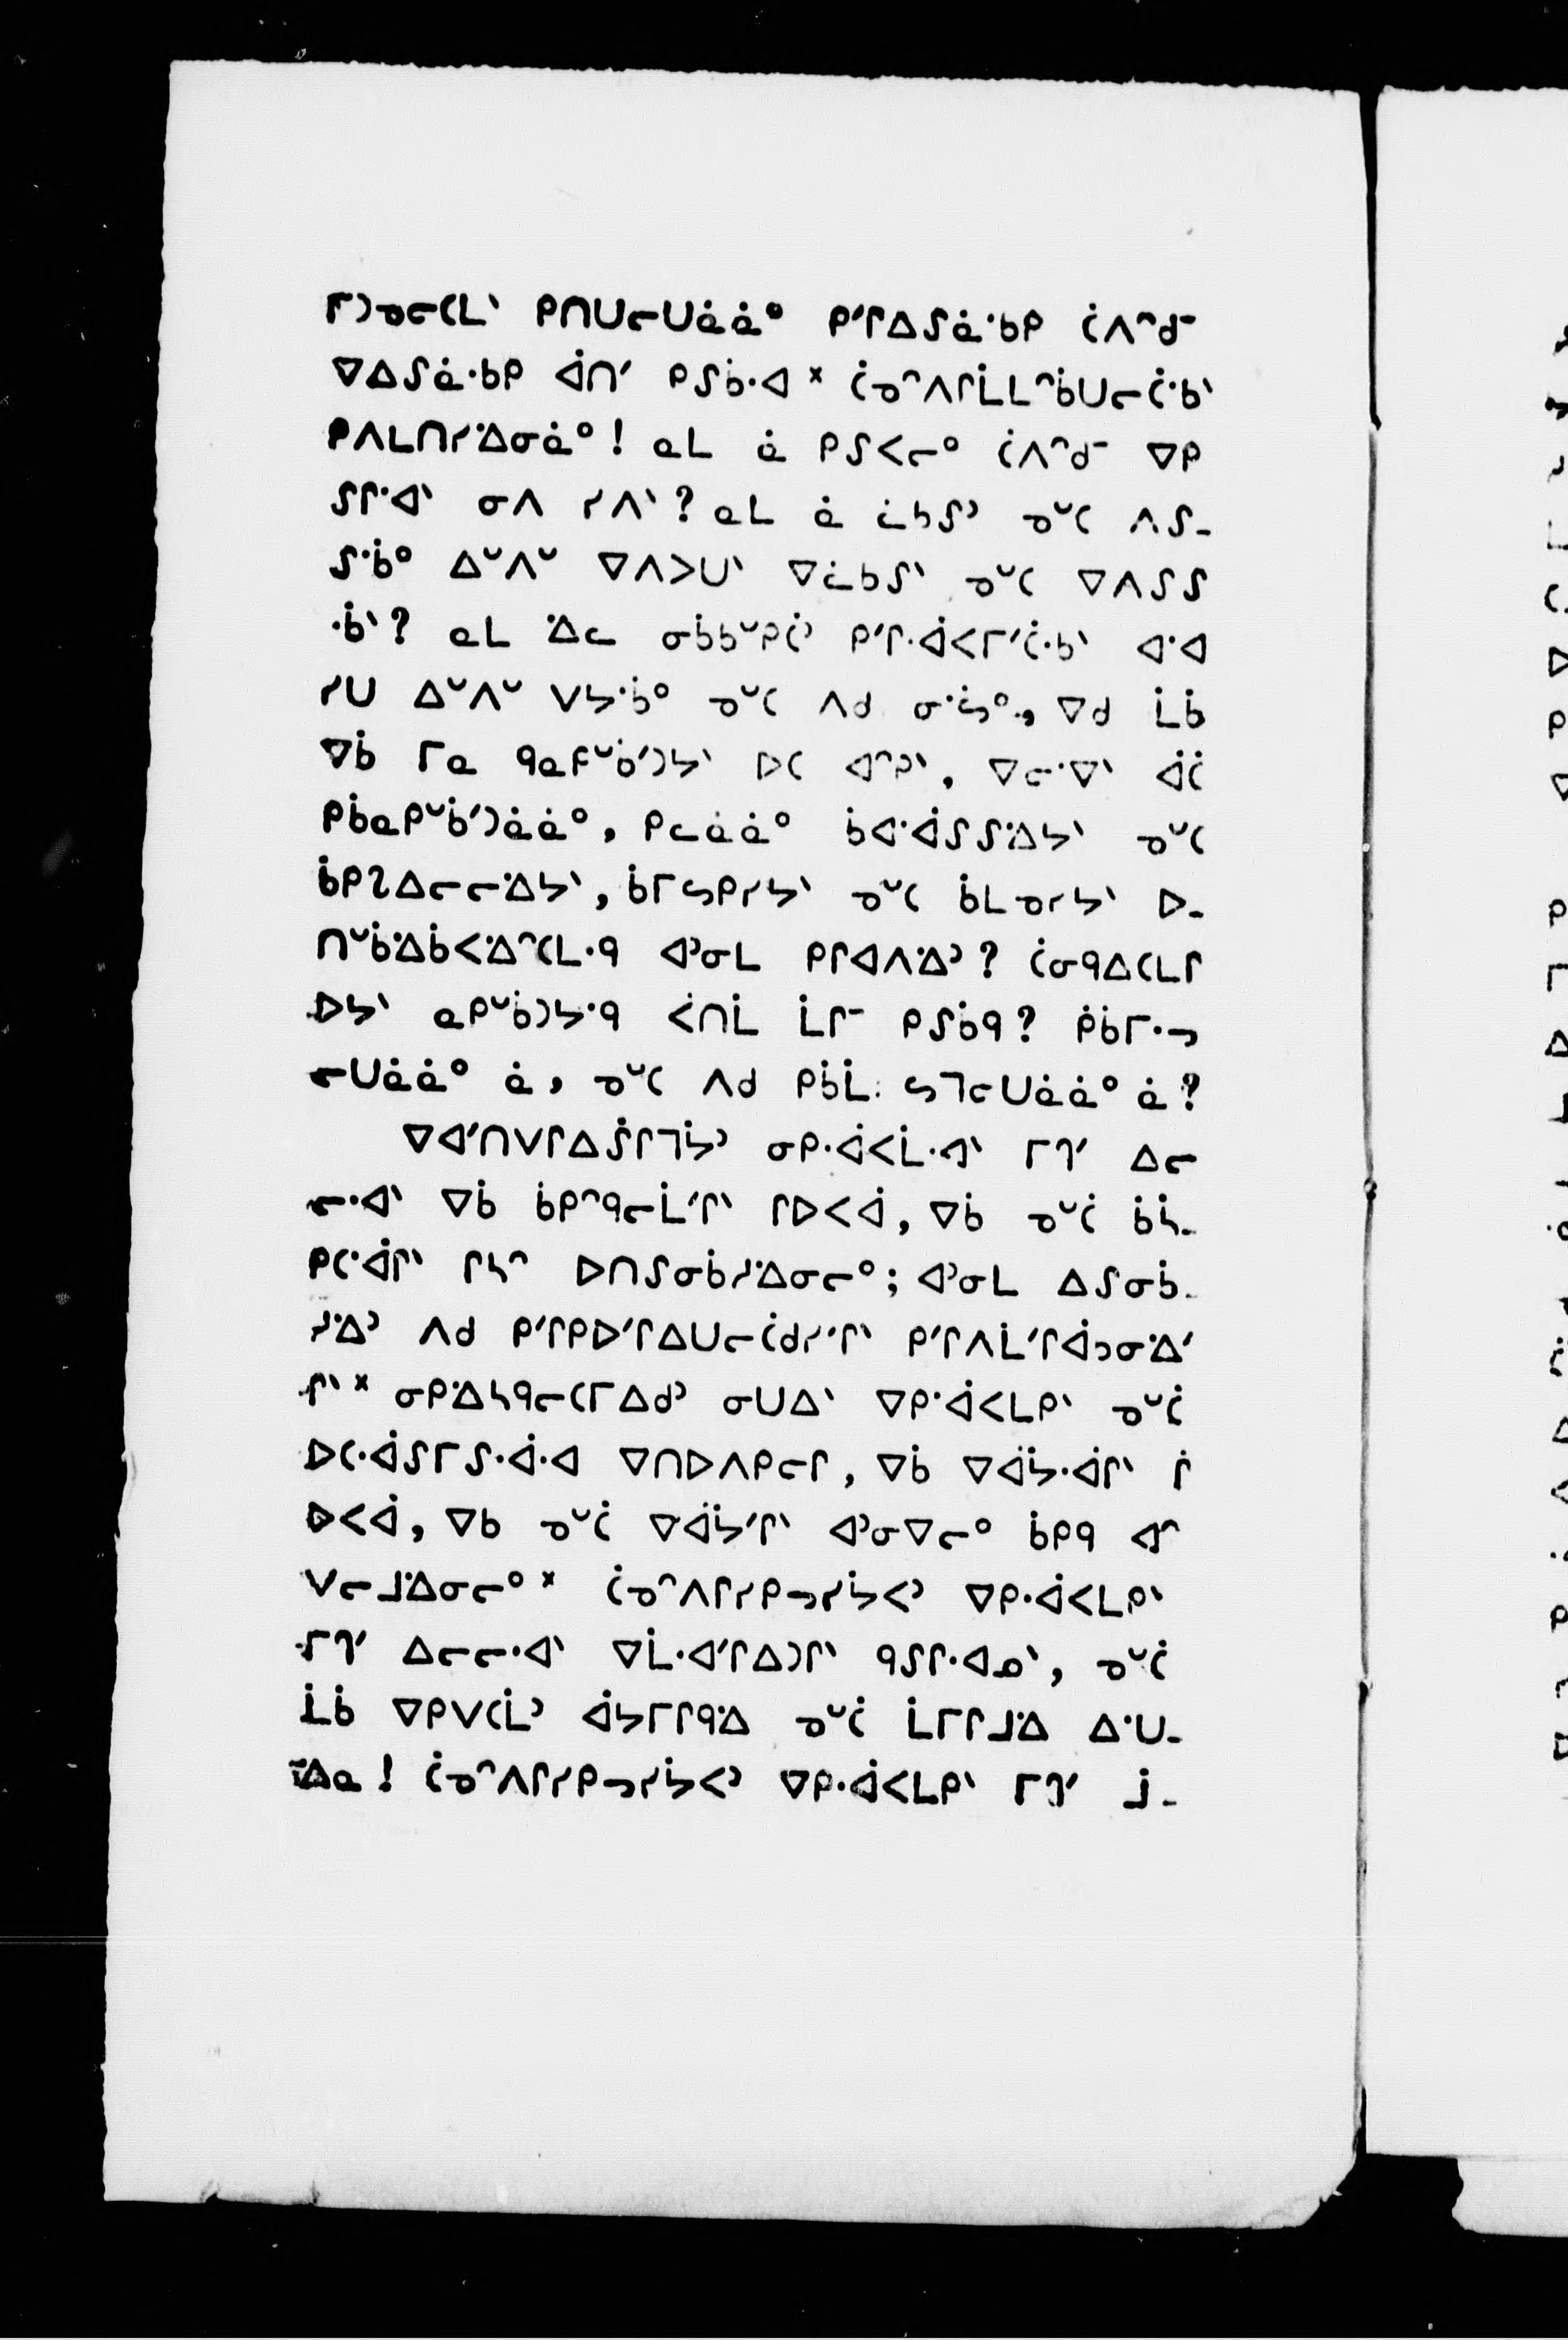 ᒥᑐᓄᓕᑕᒪᐠ ᑭᑎᑌᓕᑌᓈᓈᐤ ᑭᐟᒋᐃᔑᓈᐧᑲᑭ ᑖᐱᐢᑯᐨ
ᐁᐃᔑᓈᐧᑲᑭ ᐋᑎᐟ ᑭᔑᑳᐧᐊ᙮ ᑖᓄᐢᐱᒋᒫᒪᐢᑳᑌᓕᑖᐧᑲᐠ
ᑭᐱᒪᑎᓯᐧᐃᓂᓈᐤ! ᓇᒪ ᓈ ᑭᔑᐸᓕᐤ ᑖᐱᐢᑯᐨ ᐁᑭ
ᔑᒋᐧᐊᐠ ᓂᐱ ᓯᐱᐠ? ᓇᒪ ᓈ ᓛᑲᔑᐣ ᓄᐡᑕ ᐱᔑ-
ᔑᐧᑳᐤ ᐃᐡᐱᐡ ᐁᐱᐳᑌᐠ ᐁᓛᑲᔑᐠ ᓄᐡᑕ ᐁᐱᔑᔑ
ᐧᑳᐠ? ᓇᒪ ᐧᐃᓚ ᓂᑳᑲᐡᑭᑖᐣ ᑭᐟᒋᐧᐋᐸᒥᐟᑖᐧᑲᐠ ᐊᐧᐊ
ᓯᑌ ᐃᐡᐱᐡ ᐯᔭᐧᑳᐤ ᓄᐡᑕ ᐱᑯ ᓂᐧᔖᐤ, ᐁᑯ ᒫᑳ
ᐁᑳ ᒥᓇ ᑫᓇᑭᐡᑳᐟᑐᔭᐠ ᐅᑕ ᐊᐢᑭᐠ, ᐁᓕᐧᐁᐠ ᐋᑖ
ᑭᑳᓇᑭᐡᑳᐟᑐᓈᓈᐤ, ᑭᓚᓈᓈᐤ ᑳᐊᐧᐋᔑᔑᐧᐃᔭᐠ ᓄᐡᑕ
ᑳᑭᔐᐃᓕᓕᐧᐃᔭᐠ, ᑳᒥᔕᑭᓯᔭᐠ ᓄᐡᑕ ᑳᒪᓄᓯᔭᐠ ᐅ-
ᑎᐡᑳᐧᐃᑳᐸᐧᐃᐢᑕᒪᐧᑫ ᐊᐣᓂᒪ ᑭᒋᐊᐱᐧᐃᐣ? ᑖᓂᑫᐃᑕᒪᒋ
ᐅᔭᐠ ᓇᑭᐡᑳᑐᔭᐧᑫ ᐹᑎᒫ ᒫᒋᐨ ᑭᔑᑳᑫ? ᑮᑳᒥᐧᓓ
ᓕᑌᓈᓈᐤ ᓈ, ᓄᐡᑕ ᐱᑯ ᑭᑳᒫ ᔕᒣᓕᑌᓈᓈᐤ ᓈ?
ᐁᐊᐟᑎᐯᒋᐃᔒᒋᒣᔮᐣ ᓂᑭᐧᐋᐸᒫᐧᐊᐠ ᒥᒉᐟ ᐃᓕ
ᓕᐧᐊᐠ ᐁᑳ ᑳᑭᐢᑫᓕᒫᐟᒋᐠ ᒋᐅᐸᐋ, ᐁᑳ ᓄᐡᑖ ᑳᓵ-
ᑭᑕᐧᐋᒋᐠ ᒋᓴᐢ ᐅᑎᔑᓂᑳᓱᐧᐃᓂᓕᐤ; ᐊᐣᓂᒪ ᐃᔑᓂᑳ-
ᓱᐧᐃᐣ ᐱᑯ ᑭᐟᒋᑭᐅᐟᒋᐃᑌᓕᑖᑯᓯᐧᐟᒋᐠ ᑭᐟᒋᐱᒫᐟᒋᐋᑐᓂᐧᐃᐟ
ᒋᐠ᙮ ᓂᑭᐧᐃᓴᑫᓕᑕᒥᐃᑯᐣ ᓂᑌᐃᐠ ᐁᑭᐧᐋᐸᒪᑭᐠ ᓄᐡᑖ
ᐅᑕᐧᐋᔑᒥᔑᐧᐋᐧᐊ ᐁᑎᐅᐱᑭᓕᒋ, ᐁᑳ ᐁᐋᔮᐧᐋᒋᐠ ᒌ
ᐅᐸᐋ, ᐁᑲ ᓄᐡᑖ ᐁᐋᔮᐟᒋᐠ ᐊᐣᓂᐁᓕᐤ ᑳᑭᑫ ᐊᐢ
ᐯᓕᒧᐧᐃᓂᓕᐤ᙮ ᑖᓄᐢᐱᒋᓯᑭᓓᓯᔮᐸᐣ ᐁᑭᐧᐋᐸᒪᑭᐠ
ᒥᒉᐟ ᐃᓕᓕᐧᐊᐠ ᐁᒫᐧᐊᐟᒋᐃᑐᒋᐠ ᑫᔑᒋᐧᐊᓄᐠ, ᓄᐡᑖ
ᒫᑳ ᐁᑭᐯᑕᒫᐣ ᐋᔭᒥᒋᑫᐧᐃ ᓄᐡᑖ ᒫᒥᒋᒧᐧᐃ ᐃᐧᑌ-
ᐧᐃᓇ! ᑖᓄᐢᐱᒋᓯᑭᓓᓯᔮᐸᐣ ᐁᑭᐧᐋᐸᒪᑭᐠ ᒥᒉᐟ ᒨ-